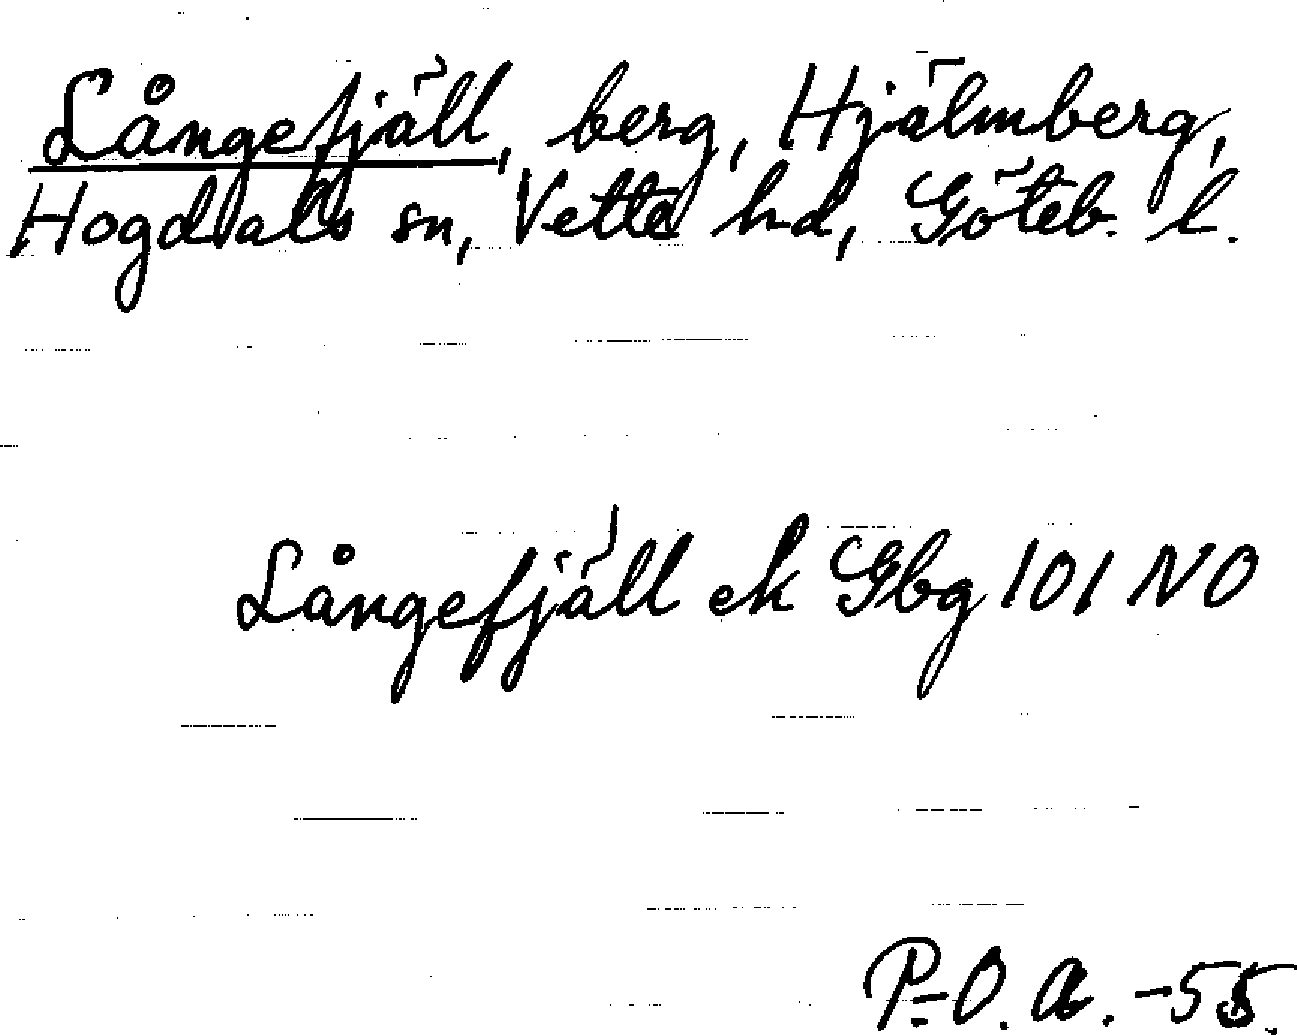 Långefjäll, berg, Hjälmberg,
Hogdals sn, Vette hd, Göteb. l.
Långefjäll ek Gbg 101 NO
P-O. A. -55.